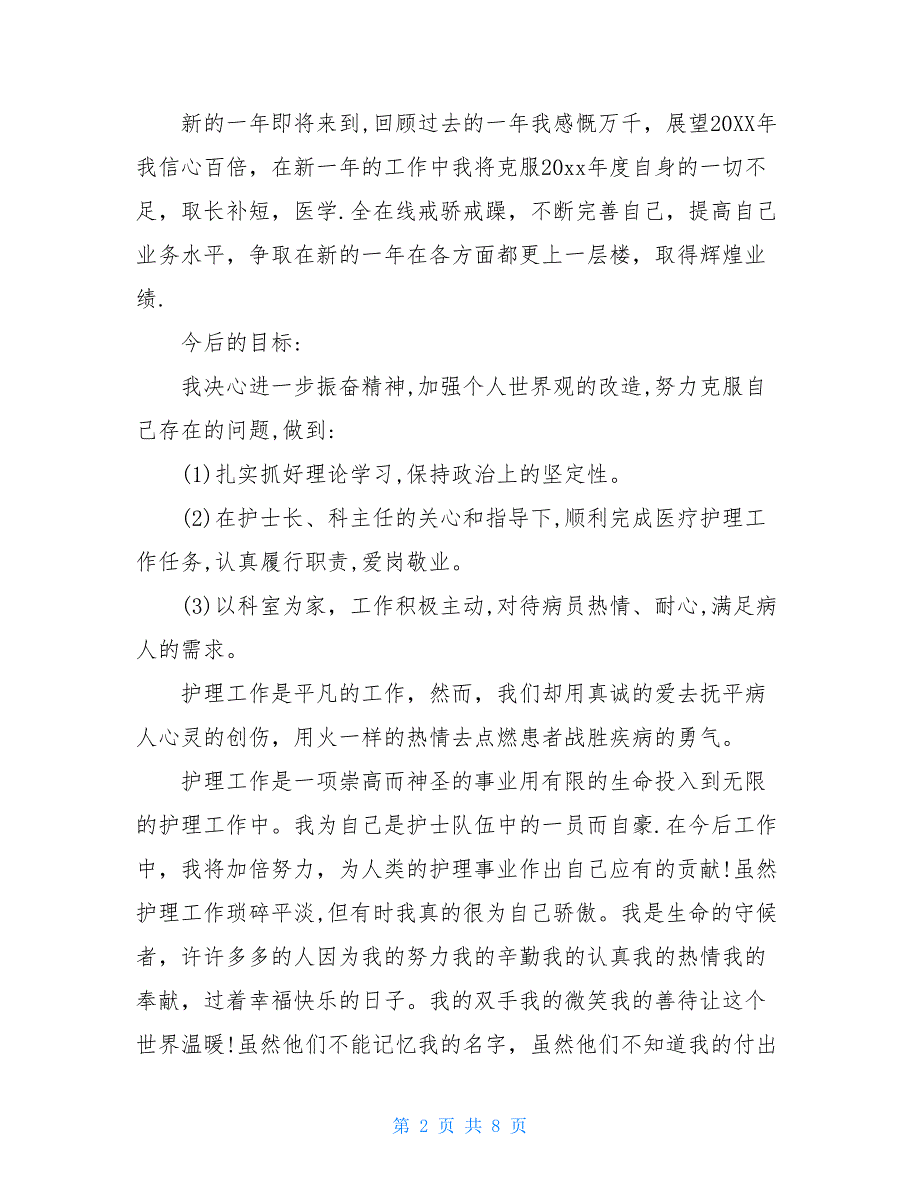 新的一年即将来到,回顾过去的一年我感慨万千，展望20XX年
我信心百倍，在新一年的工作中我将克服20xx年度自身的一切不
足，取长补短，医学.全在线戒骄戒躁，不断完善自己，提高自己
业务水平，争取在新的一年在各方面都更上一层楼，取得辉煌业
绩.
今后的目标:
我决心进一步振奋精神,加强个人世界观的改造,努力克服自
己存在的问题,做到:
(1)扎实抓好理论学习,保持政治上的坚定性。
(2)在护士长、科主任的关心和指导下,顺利完成医疗护理工
作任务,认真履行职责,爱岗敬业。
(3)以科室为家，工作积极主动,对待病员热情、耐心,满足病
人的需求。
护理工作是平凡的工作，然而，我们却用真诚的爱去抚平病
人心灵的创伤，用火一样的热情去点燃患者战胜疾病的勇气。
护理工作是一项崇高而神圣的事业用有限的生命投入到无限
的护理工作中。我为自己是护士队伍中的一员而自豪.在今后工作
中，我将加倍努力，为人类的护理事业作出自己应有的贡献!虽然
护理工作琐碎平淡,但有时我真的很为自己骄傲。我是生命的守候
者，许许多多的人因为我的努力我的辛勤我的认真我的热情我的
奉献，过着幸福快乐的日子。我的双手我的微笑我的善待让这个
世界温暖!虽然他们不能记忆我的名字，虽然他们不知道我的付出
第 2 页 共 8 页